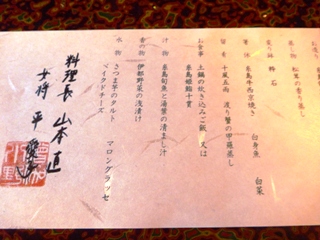 蒸し物 松茸の香り蒸し
釜の鉢 鈴石
箸休 糸島牛西京焼き 白身魚 白菜
留肴 十風五雨 渡り蟹の甲羅蒸し
お食事 土鍋の炊き込みご飯 又は
糸島姫鮨十貫
汁物 糸島旬魚と湯葉の清まし汁
香の物 伊都野菜の浅漬け
水物 さつま芋のタルト マロングラッセ
ベイクドチーズ
料理長 山本 直
女将 平